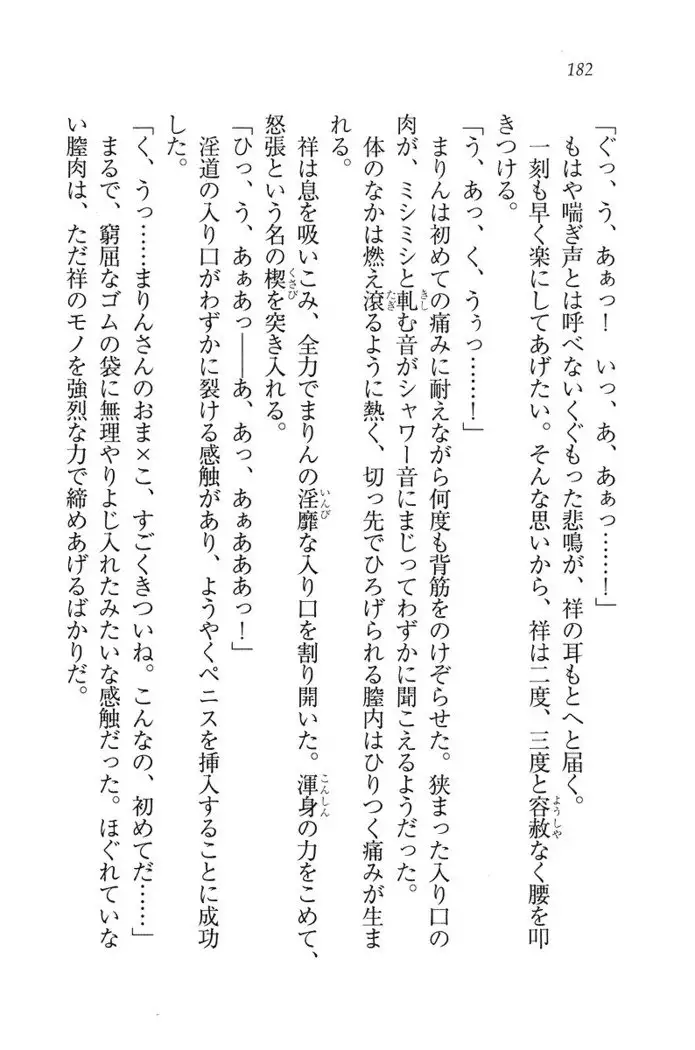 182
「ぐっ、う、あぁっ！　いっ、あ、あぁっ……！」
もはや喘ぎ声とは呼べないくぐもった悲鳴が、祥の耳もとへと届く。
ようしや
一刻も早く楽にしてあげたい。そんな思いから、祥は二度、三度と容赦なく腰を叩
きつける。
「う、あっ、く、うぅっ……！」
まりんは初めての痛みに耐えながら何度も背筋をのけぞらせた。狭まった入り口の
きし
肉が、ミシミシと軋む音がシャワー音にまじってわずかに聞こえるようだった。
たぎ
体のなかは燃え滾るように熱く、切っ先でひろげられる膣内はひりつく痛みが生ま
れる。
いんび こんしん
祥は息を吸いこみ、全力でまりんの淫靡な入り口を割り開いた。渾身の力をこめて、
くさび
怒張という名の楔を突き入れる。
「ひっ、う、あぁあっ――あ、あっ、あぁあああっ！」
淫道の入り口がわずかに裂ける感触があり、ようやくペニスを挿入することに成功
した。
「く、うっ……まりんさんのおま×こ、すごくきついね。こんなの、初めてだ……」
まるで、窮屈なゴムの袋に無理やりよじ入れたみたいな感触だった。ほぐれていな
い膣肉は、ただ祥のモノを強烈な力で締めあげるばかりだ。